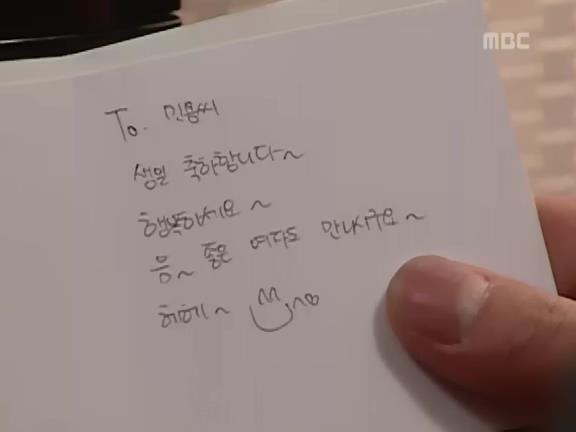 MBC
To. 민용씨
생일 축하합니다~
행복하세요~
음~ 좋은 여자도 만나시구요~
히히~